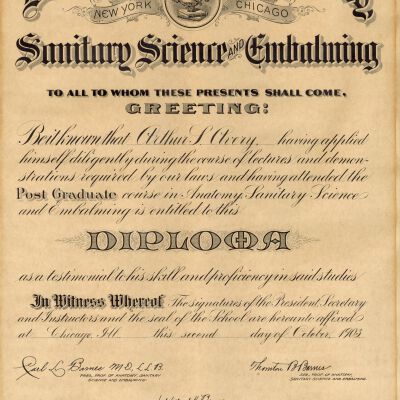 NEW YORK CHICAGO
Sanitary Science AND Embalming
TO ALL TO WHOM THESE PRESENTS SHALL COME,
GREETING:
Be it known that Arthur L. Avery having applied
himself diligently during the course of lectures and demon-
strations required by our laws and having attended the
Post Graduate course in Anatomy Sanitary Science
and Embalming is entitled to this
DIPLOMA
as a testimonial to his skill and proficiency in said studies
In Witness Whereof The signatures of the President, Secretary
and Instructors and the seal of the School are hereunto affixed
at Chicago, Ill. this second day of October, 1905
Carl L. Barnes M.D., LL.B. Thornton B. Barnes
PRES., PROF. OF ANATOMY, SANITARY SEC., PROF. OF ANATOMY,
SCIENCE AND EMBALMING. SANITARY SCIENCE AND EMBALMING.